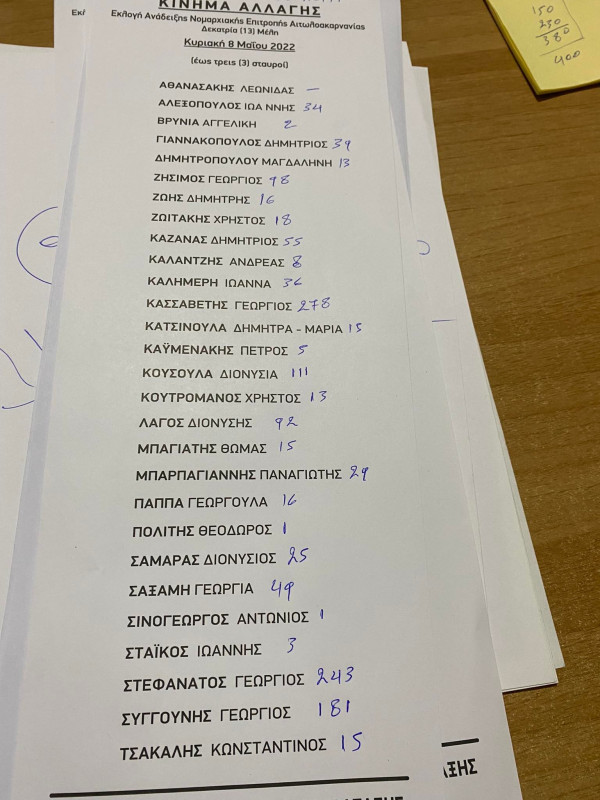 ΚΙΝΗΜΑ ΑΛΛΑΓΗΣ
Εκλογή Ανάδειξης Νομαρχιακής Επιτροπής Αιτωλοακαρνανίας
Δεκατρία (13) Μέλη
Κυριακή 8 Μαΐου 2022
(έως τρεις (3) σταυροί)
ΑΘΑΝΑΣΑΚΗΣ ΛΕΩΝΙΔΑΣ —
ΑΛΕΞΟΠΟΥΛΟΣ ΙΩΑ ΝΝΗΣ 34
ΒΡΥΝΙΑ ΑΓΓΕΛΙΚΗ 2
ΓΙΑΝΝΑΚΟΠΟΥΛΟΣ ΔΗΜΗΤΡΙΟΣ 39
ΔΗΜΗΤΡΟΠΟΥΛΟΥ ΜΑΓΔΑΛΗΝΗ 13
ΖΗΣΙΜΟΣ ΓΕΩΡΓΙΟΣ 98
ΖΩΗΣ ΔΗΜΗΤΡΗΣ 16
ΖΩΙΤΑΚΗΣ ΧΡΗΣΤΟΣ 18
ΚΑΖΑΝΑΣ ΔΗΜΗΤΡΙΟΣ 55
ΚΑΛΑΝΤΖΗΣ ΑΝΔΡΕΑΣ 8
ΚΑΛΗΜΕΡΗ ΙΩΑΝΝΑ 36
ΚΑΣΣΑΒΕΤΗΣ ΓΕΩΡΓΙΟΣ 278
ΚΑΤΣΙΝΟΥΛΑ ΔΗΜΗΤΡΑ - ΜΑΡΙΑ 15
ΚΑΫΜΕΝΑΚΗΣ ΠΕΤΡΟΣ 5
ΚΟΥΣΟΥΛΑ ΔΙΟΝΥΣΙΑ 111
ΚΟΥΤΡΟΜΑΝΟΣ ΧΡΗΣΤΟΣ 13
ΛΑΓΟΣ ΔΙΟΝΥΣΗΣ 92
ΜΠΑΓΙΑΤΗΣ ΘΩΜΑΣ 15
ΜΠΑΡΠΑΓΙΑΝΝΗΣ ΠΑΝΑΓΙΩΤΗΣ 29
ΠΑΠΠΑ ΓΕΩΡΓΟΥΛΑ 16
ΠΟΛΙΤΗΣ ΘΕΟΔΩΡΟΣ 1
ΣΑΜΑΡΑΣ ΔΙΟΝΥΣΙΟΣ 25
ΣΑΞΑΜΗ ΓΕΩΡΓΙΑ 49
ΣΙΝΟΓΕΩΡΓΟΣ ΑΝΤΩΝΙΟΣ 1
ΣΤΑΪΚΟΣ ΙΩΑΝΝΗΣ 3
ΣΤΕΦΑΝΑΤΟΣ ΓΕΩΡΓΙΟΣ 243
ΣΥΓΓΟΥΝΗΣ ΓΕΩΡΓΙΟΣ 181
ΤΣΑΚΑΛΗΣ ΚΩΝΣΤΑΝΤΙΝΟΣ 15
150
230
380
400